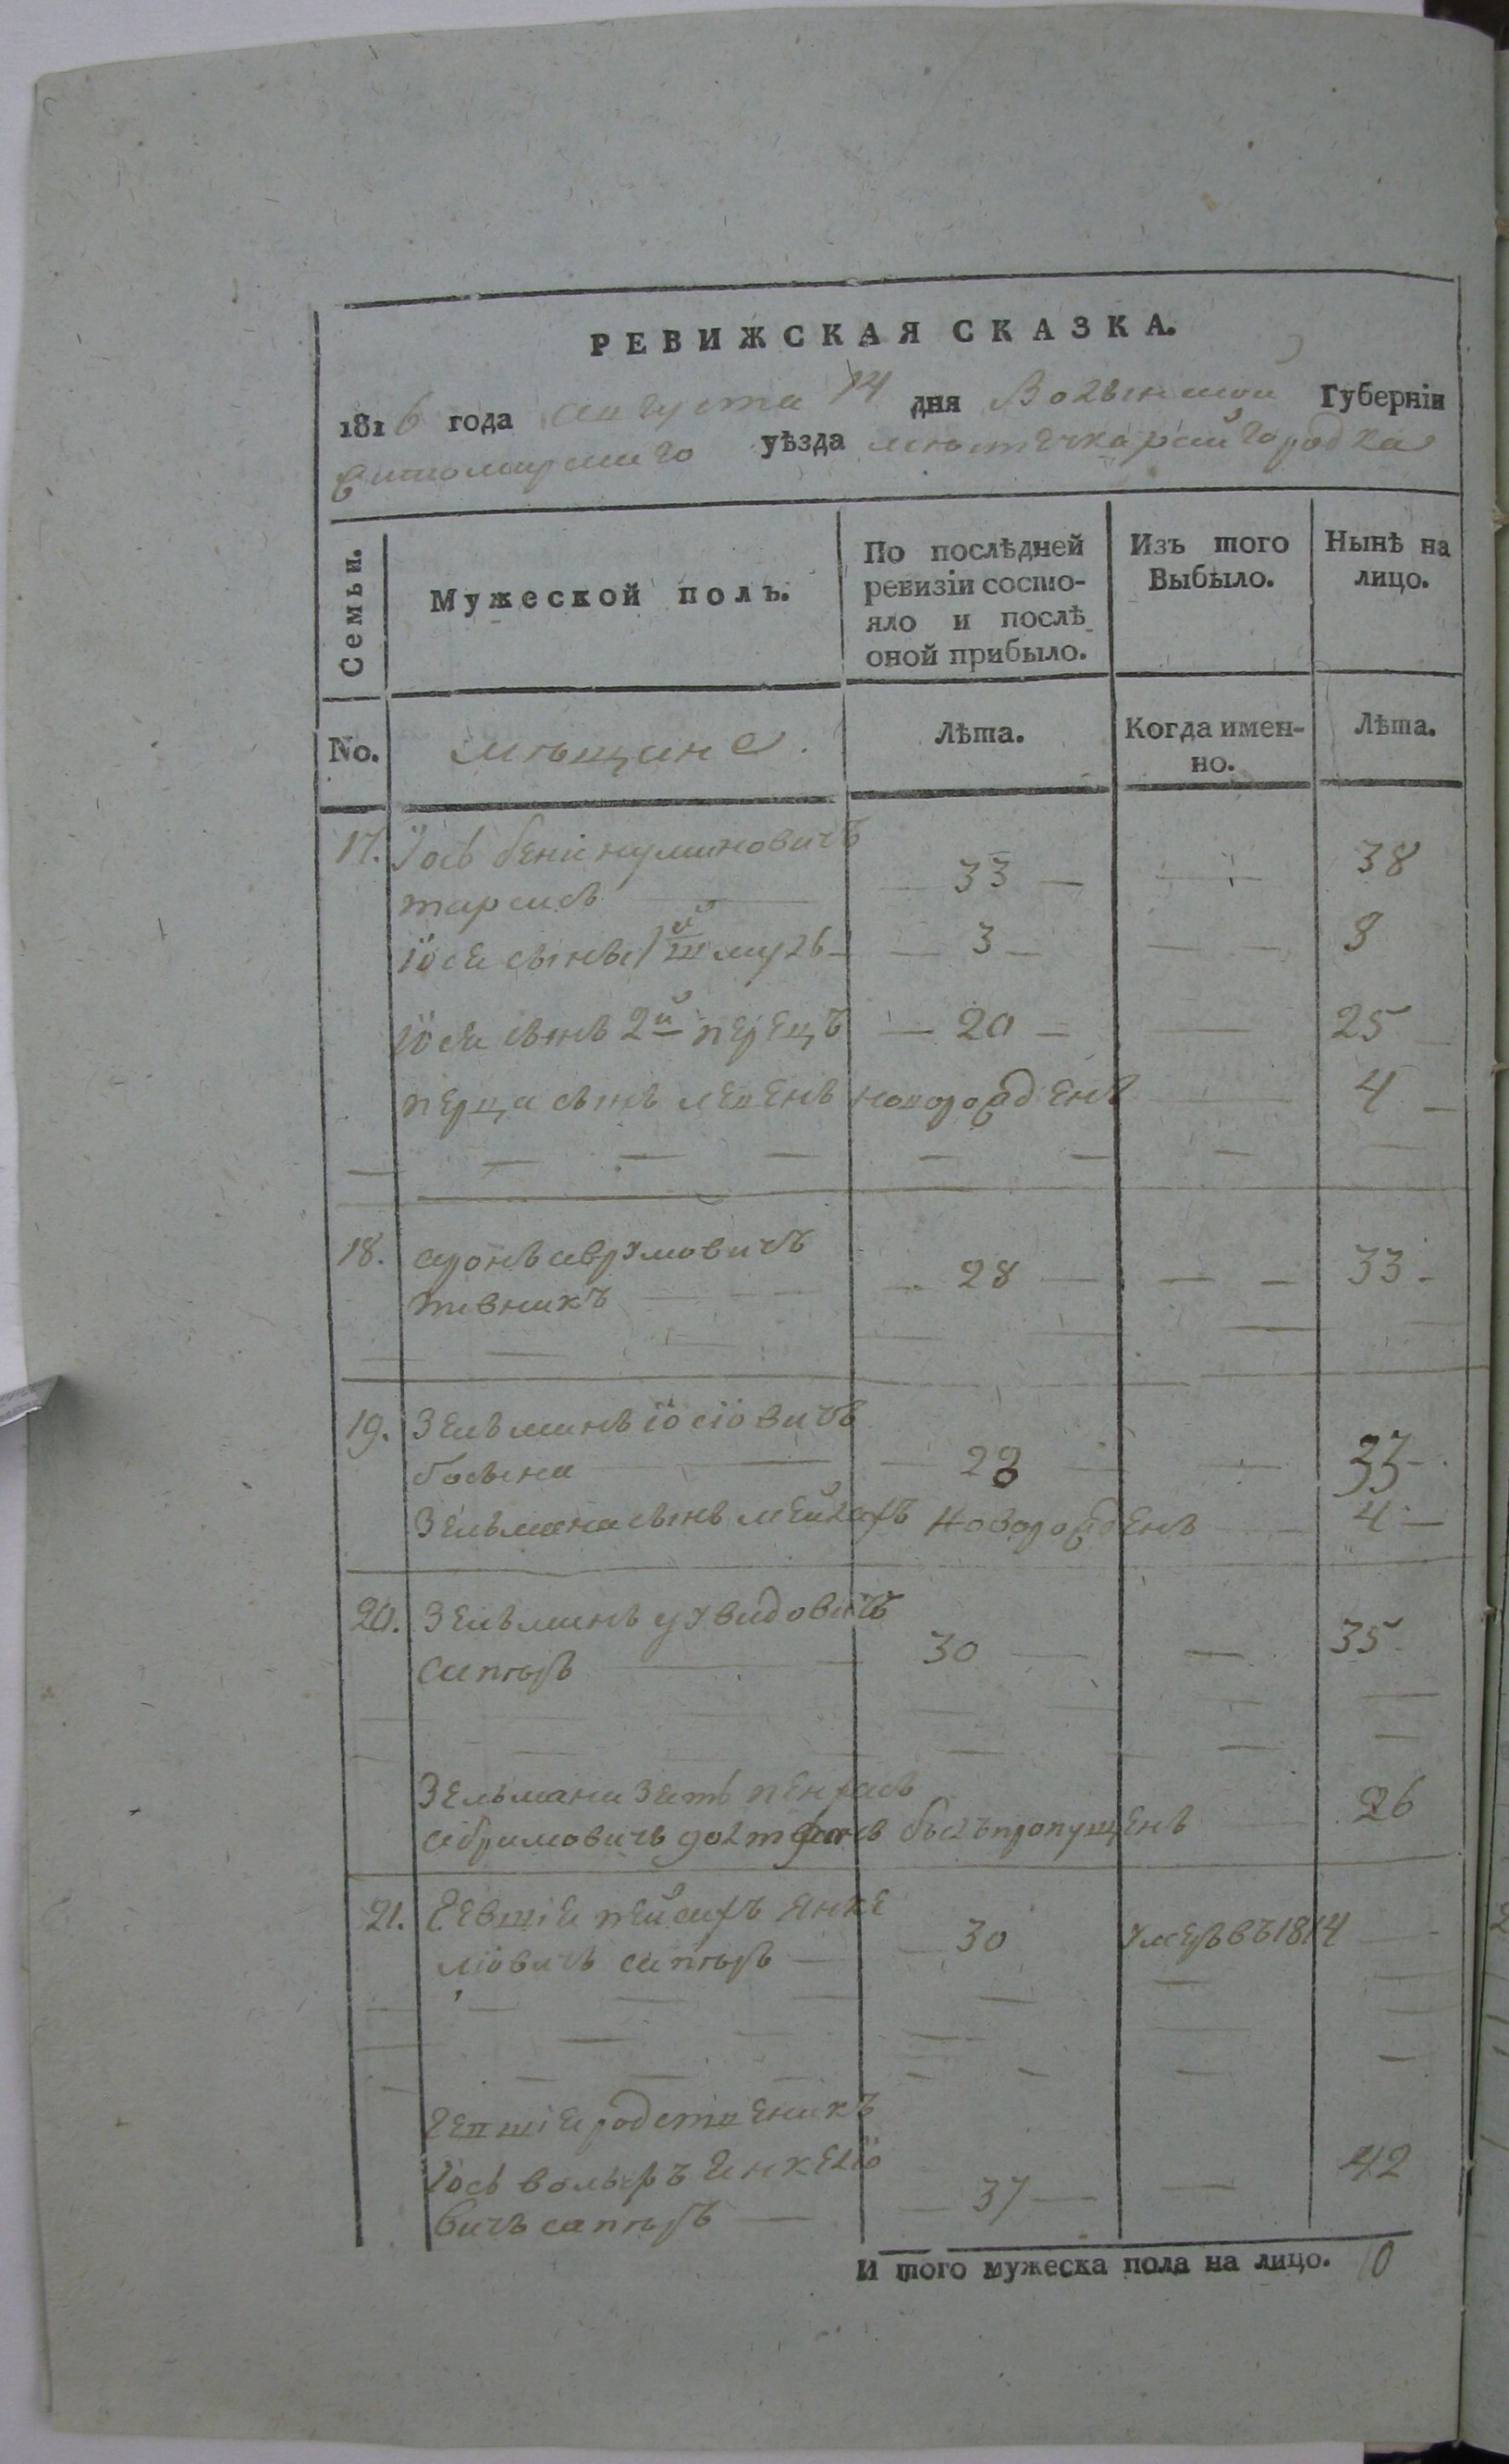 РЕВИЖСКАЯ СКАЗКА.
1816 года августа 14 дня Волынской Губерніи
Житомирскаго уѣзда местечка райгородка
Семьи.
Мужеской полъ.
По послѣдней ревизіи состояло и послѣ оной прибыло.
Изъ того Выбыло.
Нынѣ на лицо.
No.
мѣщане.
Лѣта.
Когда именно.
Лѣта.
17. Іось
33 38
Іося сынъ 1й Шмуль 3 8
Іося сынъ 2й перецъ 20 25
перца сынъ новорожденъ 4
18. аронъ аврумовичъ
28 33
19. Зельманъ Іосіовичъ
28 33
Зельмана сынъ новорожденъ 4
20. Зельманъ
сапѣръ 30 35
Зельмана зять пенхасъ
абрамовичъ былъ пропущенъ 26
21. пейсахъ янке
ліовичъ сапѣръ 30 умеръ въ 1814
родственикъ
Іось вольфъ Янкеліо
вичъ сапѣръ 37 42
И того мужеска пола на лицо. 10